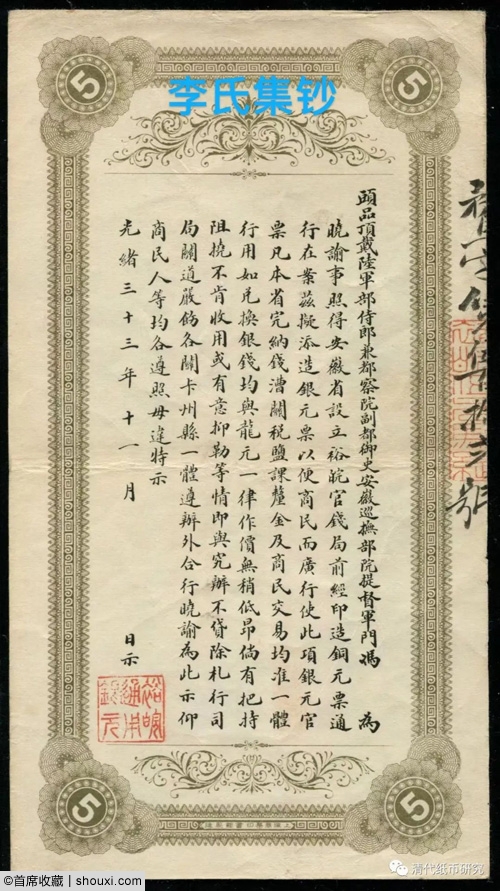 5
5
李氏集钞
頭品頂戴陸軍部侍郎兼都察院副都御史安徽巡撫部院提督軍門馮 為
曉諭事照得安徽省設立裕皖官錢局前經印造銅元票通
行在案茲擬添造銀元票以便商民而廣行使此項銀元官
票凡本省完納錢漕關稅鹽課釐金及商民交易均准一體
行用如兌換銀錢均與龍元一律作價無稍低昂倘有把持
阻撓不肯收用或有意抑勒等情即與究辦不貸除札行司
局關道嚴飭各關卡州縣一體遵辦外合行曉諭為此示仰
商民人等均各遵照毋違特示
光緒三十三年十一月 日示
裕皖
通用
銀元
5
5
清代纸币研究
@首席收藏 | shouxi.com